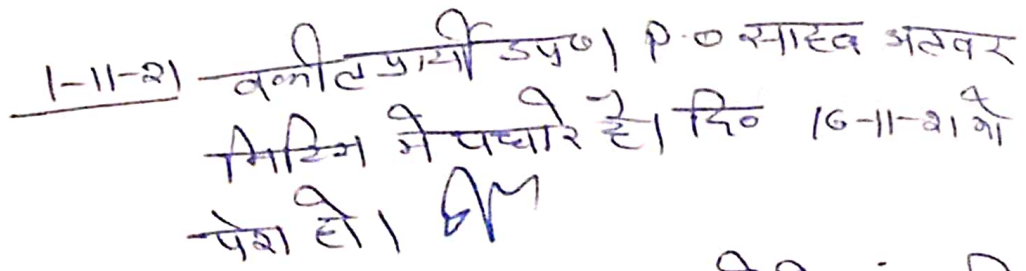 1-11-21 वकील प्रार्थी उप०। P.O साहब अलवर
मिटिंग मे पधारे है। दि० 16-11-21 को
पेश हो।